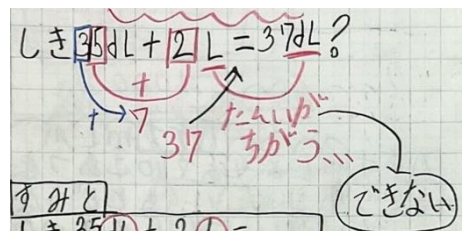 しき35dL+2L=37dL?
+
+→7
37
たんいが
ちがう…
できない
すみと
しき35dL+2L=